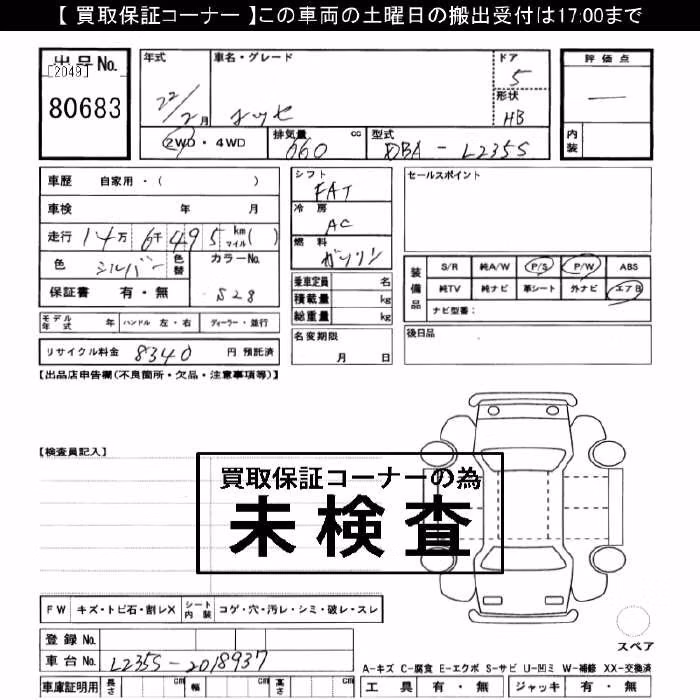 【 買取保証コーナー 】この車両の土曜日の搬出受付は17:00まで
出品No.
[2049]
80683
年式
22/2月
車名・グレード
エッセ
ドア
5
形状
HB
評価点
―
内装
2WD・4WD
排気量 660 cc
型式 DBA-L235S
車歴 自家用・( )
車検 年 月
走行 14万6千495 km マイル( )
色 シルバー 色替
カラーNo. S28
保証書 有・無
シフト
FAT
冷房
AC
燃料
ガソリン
乗車定員 名
積載量 kg
総重量 kg
セールスポイント
装備品
S/R 純A/W P/S P/W ABS
純TV 純ナビ 革シート 外ナビ エアB
ナビ型番:
モデル年式 年 ハンドル 左・右 ディーラー・並行
名変期限
月 日
後日品
リサイクル料金 8340 円 預託済
【出品店申告欄(不良箇所・欠品・注意事項等)】
【検査員記入】
買取保証コーナーの為
未検査
FW キズ・トビ石・割レX シート内装 コゲ・穴・汚レ・シミ・破レ・スレ
登録No.
車台No. L235S-2018937
車庫証明用 長さ cm 幅 cm 高さ cm
スペア
A-キズ C-腐食 E-エクボ S-サビ U-凹ミ W-補修 XX-交換済
工具 有・無 ジャッキ 有・無